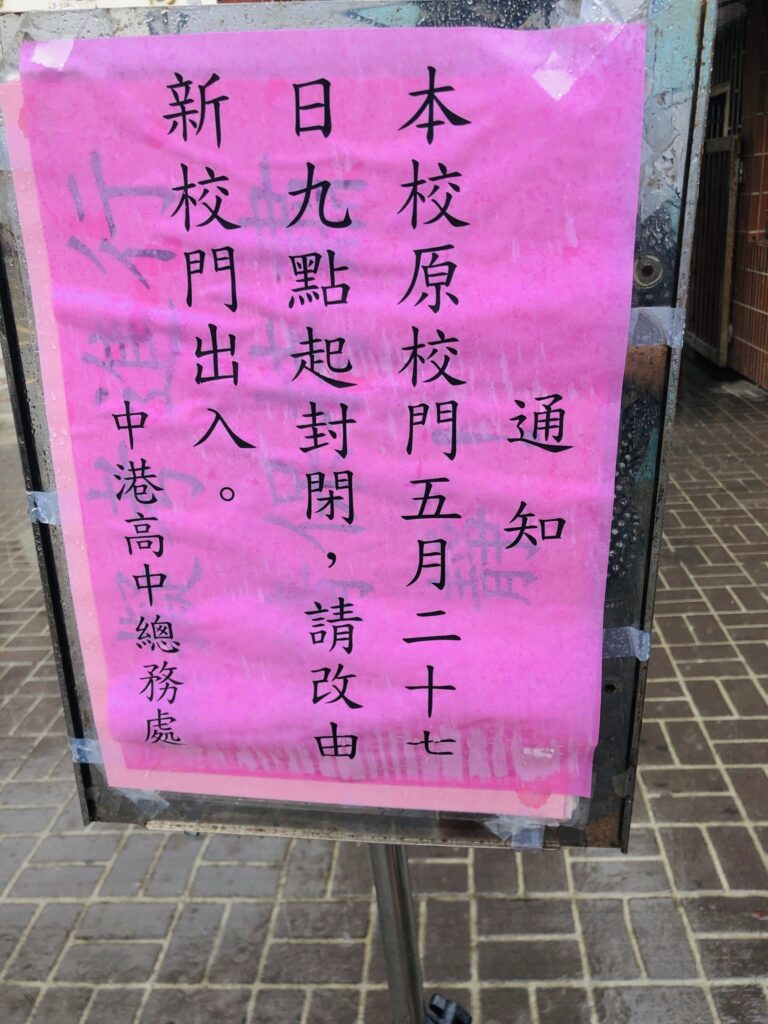 通知
本校原校門五月二十七
日九點起封閉，請改由
新校門出入。
中港高中總務處